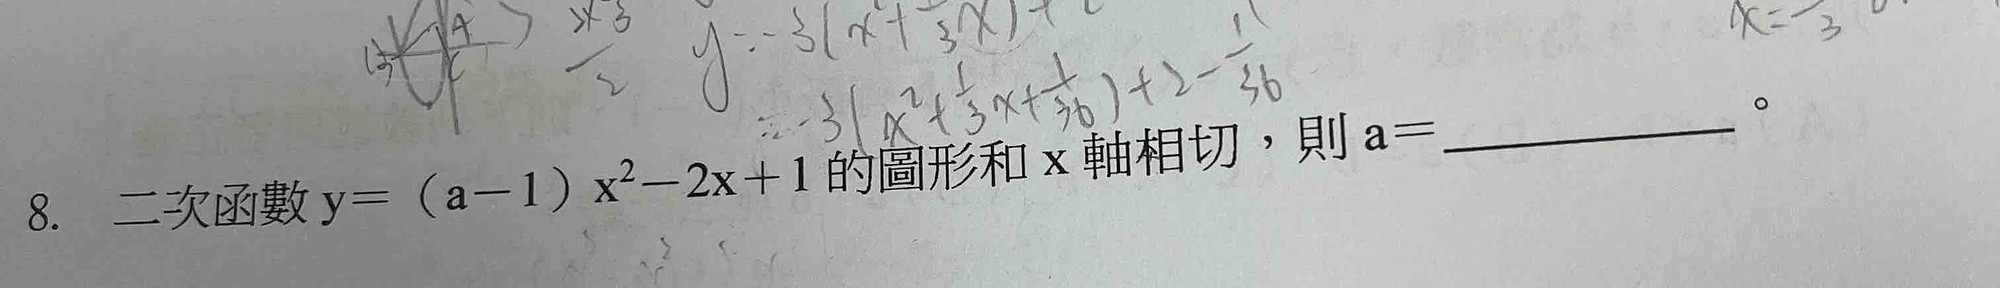 y=-3(x²+⅓x)+2
=-3(x²+⅓x+1/36)+2-1/36
8. 二次函數 y=（a-1）x²-2x+1 的圖形和 x 軸相切，則 a=＿＿＿＿＿＿。